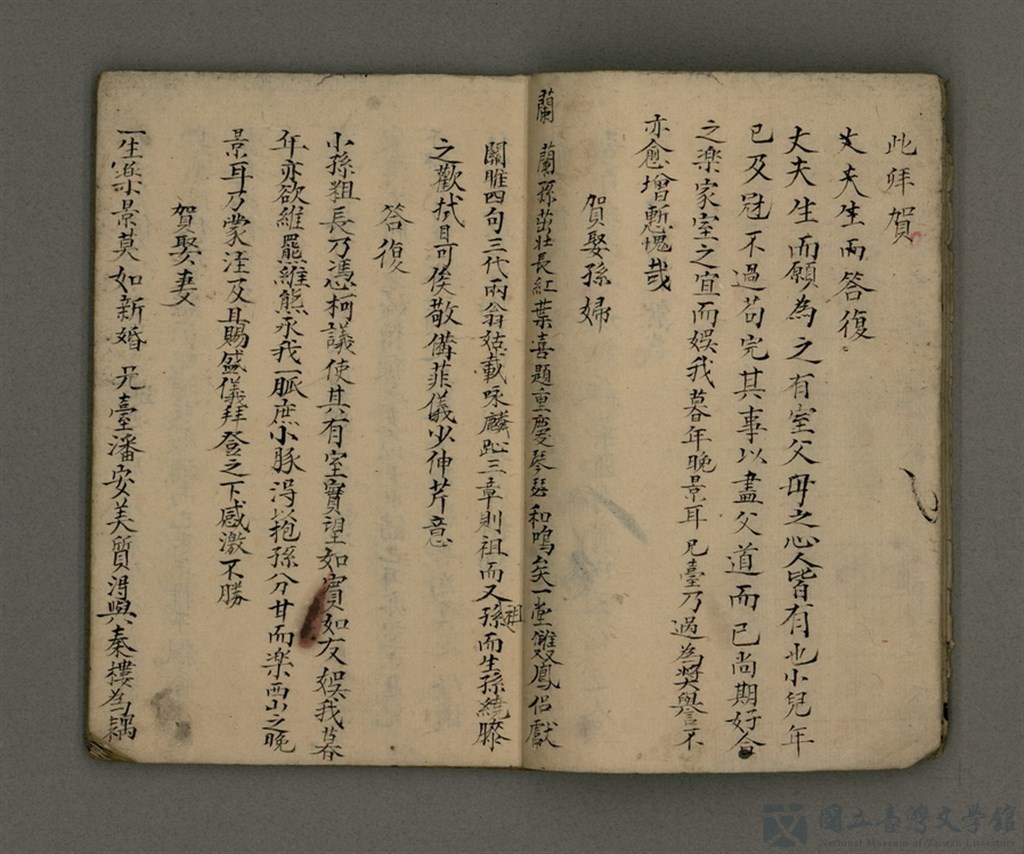 此拜賀
丈夫生而答復
丈夫生而願為之有室父母之心人皆有也小兒年
已及冠不過苟完其事以盡父道而已尚期好合
之楽家室之宜而娯我暮年晚景耳兄臺乃過為奬譽不
亦愈增慙愧哉
賀娶孫婦
蘭 蘭孫茁壯長紅葉喜題重慶琴瑟和鳴矣一堂雙鳳侶獻
關雎四句三代兩翁姑載咏麟趾三章則祖而又祖孫而生孫繞膝
之歡拭目可俟敬備菲儀少伸芹意
答復
小孫狙長乃憑柯議使其有室實望如賓如友娯我暮
年亦欲維羆維熊承我一脈庶小豚淂以抱孫分甘而楽西山之晚
景耳乃蒙注及且賜盛儀拜登之下感激不勝
賀娶妻
一生楽景莫如新婚兄臺潘安美質淂與秦樓為耦
國立臺灣文學館
National Museum of Taiwan Literature